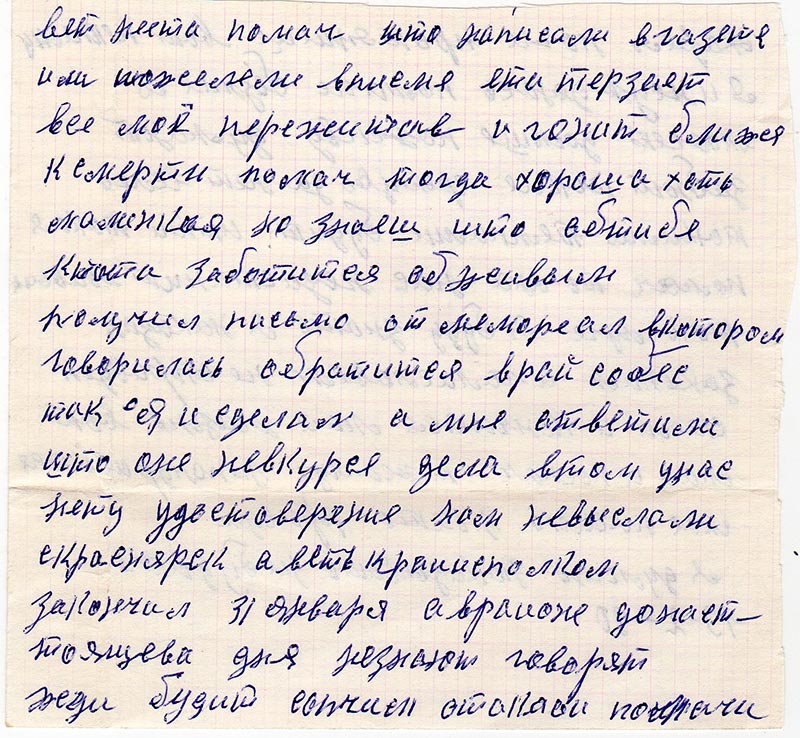 вет нета помач што написали вгазете
или пожелели вписме ета терзает
все моё пережитае и гонит ближея
к смерти помач тогда хораша хоть
маленкая но знаеш што обтибе
ктота заботится обживым
получил письмо от мемореал вкотором
говорилась обратится врай собес
так я и сделал а мне ответили
што оне невкурсе дела втом унас
нету удостоверение нам невыслали
скрасноярск а веть крайисполком
закончил 31 января аврайоне донаст-
тоящева дня незнают говорят
жди будит сопчим отакой помачи